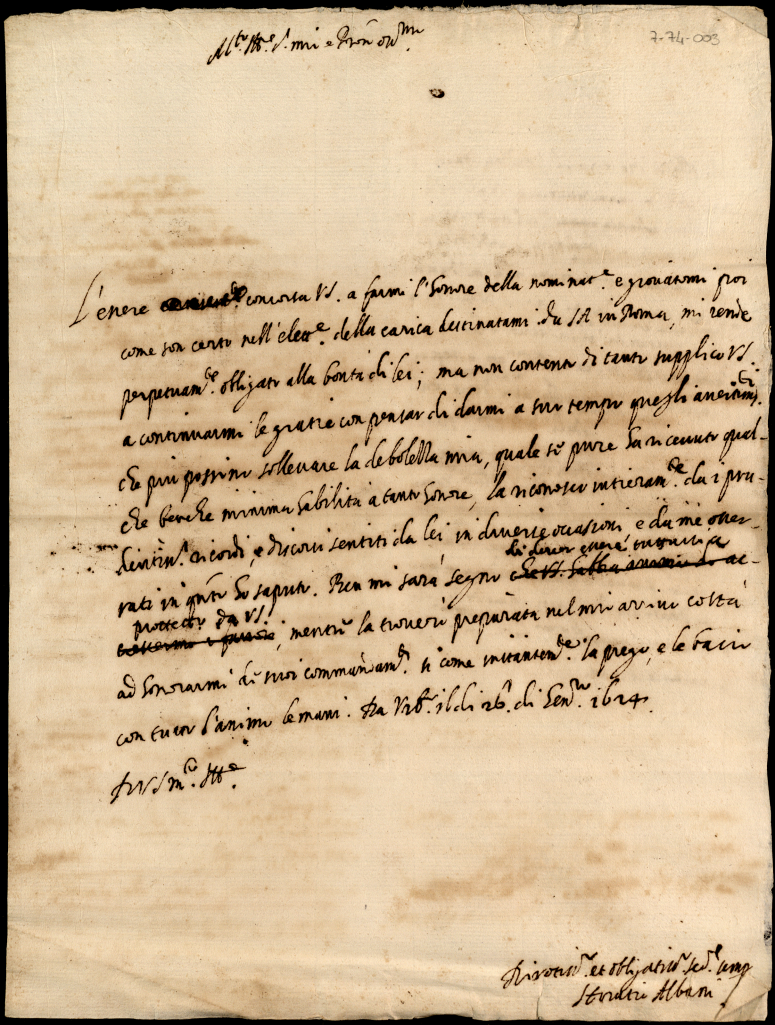 7-74-003
Mto. Ill.e S. mio e Pron oss.mo
L'essere concorsa VS. a farmi l'honore della nominat.e e giovatomi poi
come son certo nell'elett.e della carica destinatami da SA in Roma, mi rende
perpetuam.te obligato alla bontà di lei; ma non contento di tanto supplico VS.
a continuarmi le gratie con pensar di darmi a suo tempo quegli avertim.ti
che più possino sollevare la debolezza mia, quale se pure ha ricevuto qual-
che benche minima habilità a tanto honore, la riconosco intieram.te da i pru-
dentiss.i ricordi, e discorsi sentiti da lei in diverse occasioni, e da me osser-
di dover essere tuttavia
vati in q.nto ho saputo. Ben mi sarà segno
protetto da VS
, mentre la troverò preparata nel mio arrivo costà
ad honorarmi de suoi commandam.ti si come instantem.te la prego, e le bacio
con tutto l'animo le mani. Da Urb.o il dì 26. di Gen.ro 1624.
Di VS m.to Ill.e
Divotiss.o et obligatiss.o se.r semp
Horatio Albani